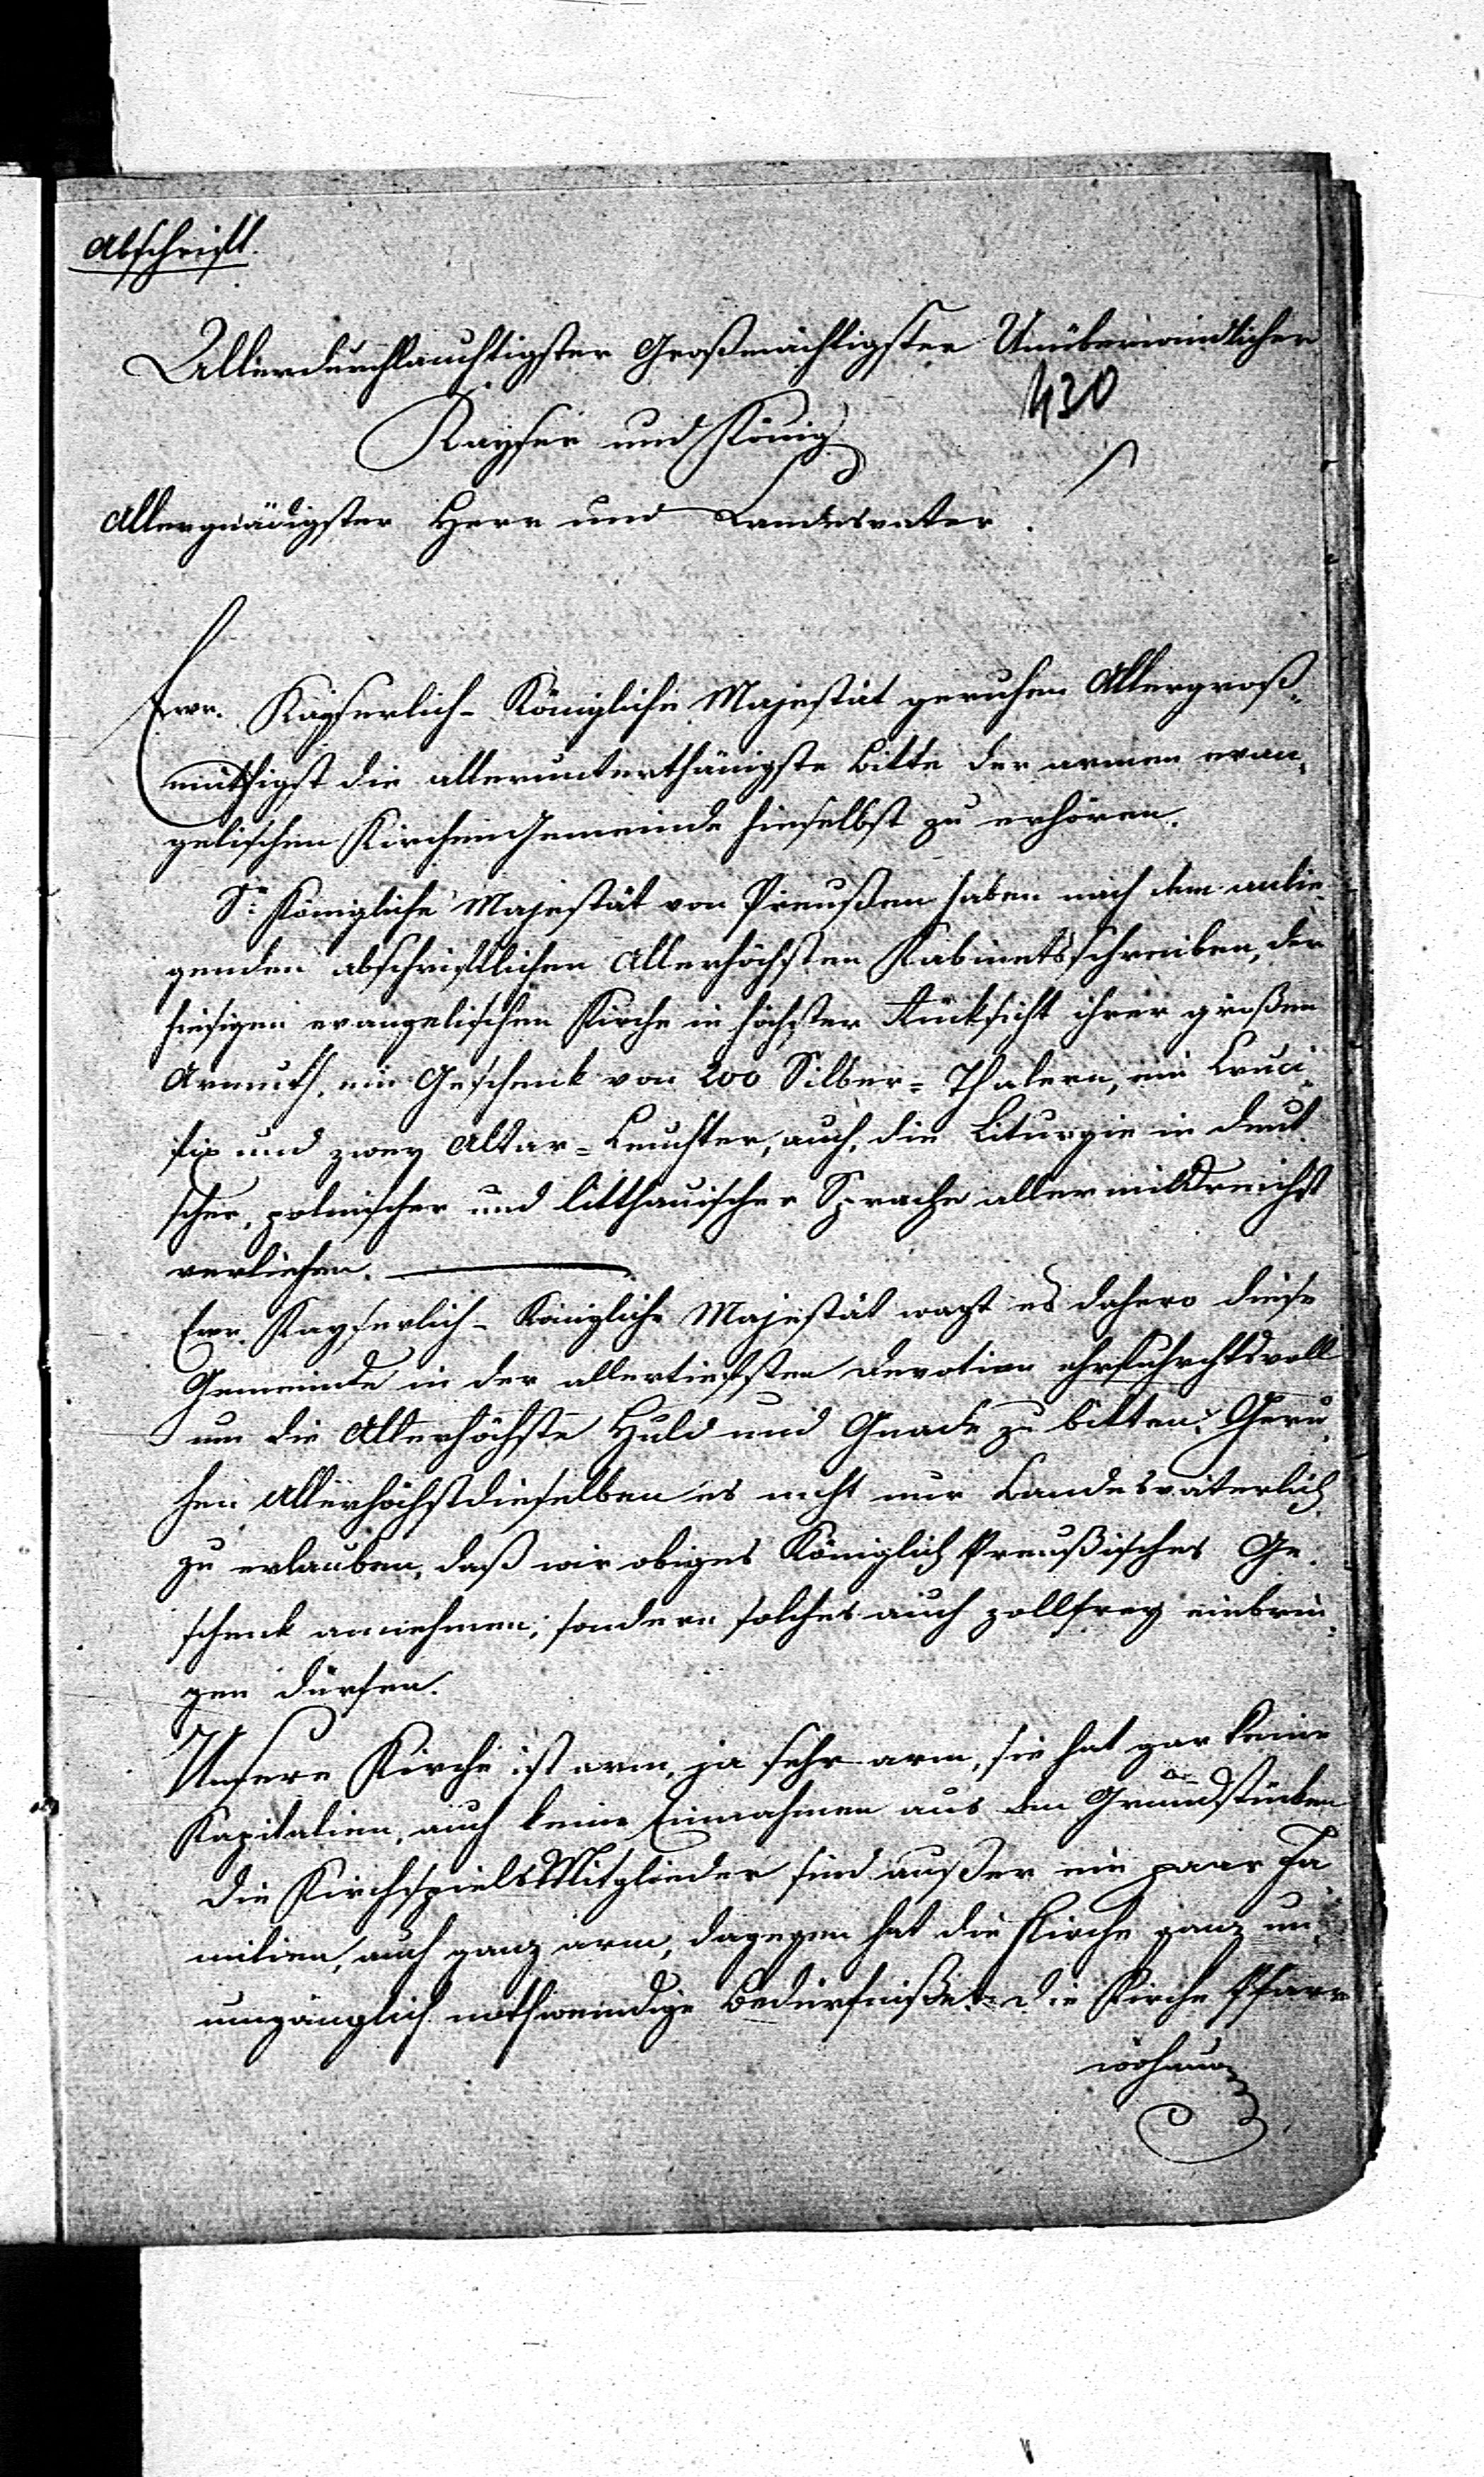 Abschrift.
Allerdurchlauchtigster Großmächtigster Unüberwindlicher
430
Kayser und König
Allergnädigster Herr und Landesvater.
Ewr. Kayserlich-Königliche Majestät geruhen Allergroß„
müthigst die allerunterthänigste Bitte der armen evan„
gelischen KirchenGemeinde hieselbst zu erhören.
Sr. Königliche Majestät von Preußen haben nach dem anlie„
genden abschriftlichen Allerhöchsten Kabinetsschreiben, der
hiesigen evangelischen Kirche in höchster Rücksicht ihrer großen
Armuth, ein Geschenk von 200 Silber=Thalern, ein Cruci„
fix und zwey Altar=Leuchter, auch, die Liturgie in deut„
scher, polnischer und litthauischer Sprache allermildreichst
verliehen.
Ewr. Kayserlich-Königliche Majestät wagt es dahero diese
Gemeinde in der allertiefsten Devotion ehrfuhrchtsvoll
um die Allerhöchste Huld und Gnade zu bitten: Geru„
hen Allerhöchstdieselben es nicht nur Landesväterlich
zu erlauben, daß wir obiges Königlich Preußisches Ge„
schenk annehmen; sondern solches auch zollfrey einbrin„
gen dürfen.
Unsere Kirche ist arm, ja sehr arm, sie hat gar keine
Kapitalien, auch keine Einnahmen aus den Grundstücken
die KirchspielsMitglieder sind außer ein paar Fa„
milien, auch ganz arm, dagegen hat die Kirche ganz un„
umgänglich nothwendige Bedürfniße: die Kirche Pfarr